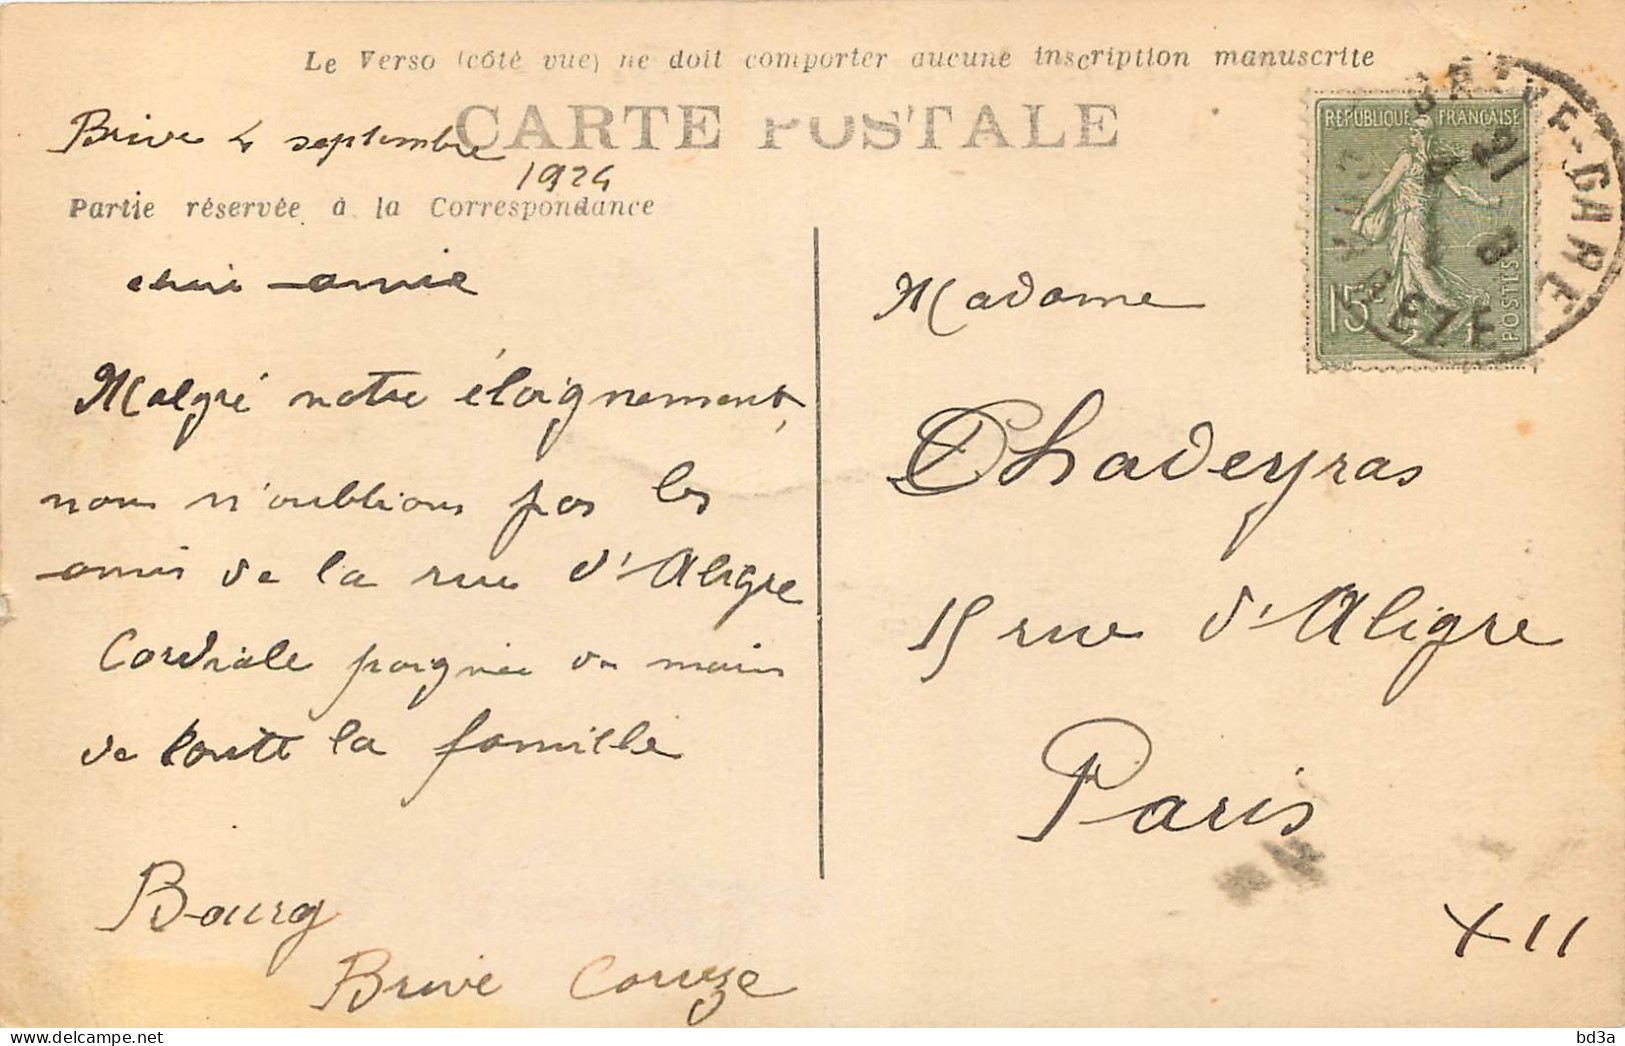 Le Verso (côté vue) ne doit comporter aucune inscription manuscrite
CARTE POSTALE
Brive 4 septembre
1924
Partie réservée à la Correspondance
chère amie
Malgré notre éloignement,
nous n'oublions pas les
amis de la rue d'Aligre
Cordiale poignée de main
de toute la famille
Bourg
Brive Corrèze
REPUBLIQUE FRANÇAISE
15c
POSTES
BRIVE-GARE
CORREZE
Madame
Chadeyras
15 rue d'Aligre
Paris
XII
bd3a